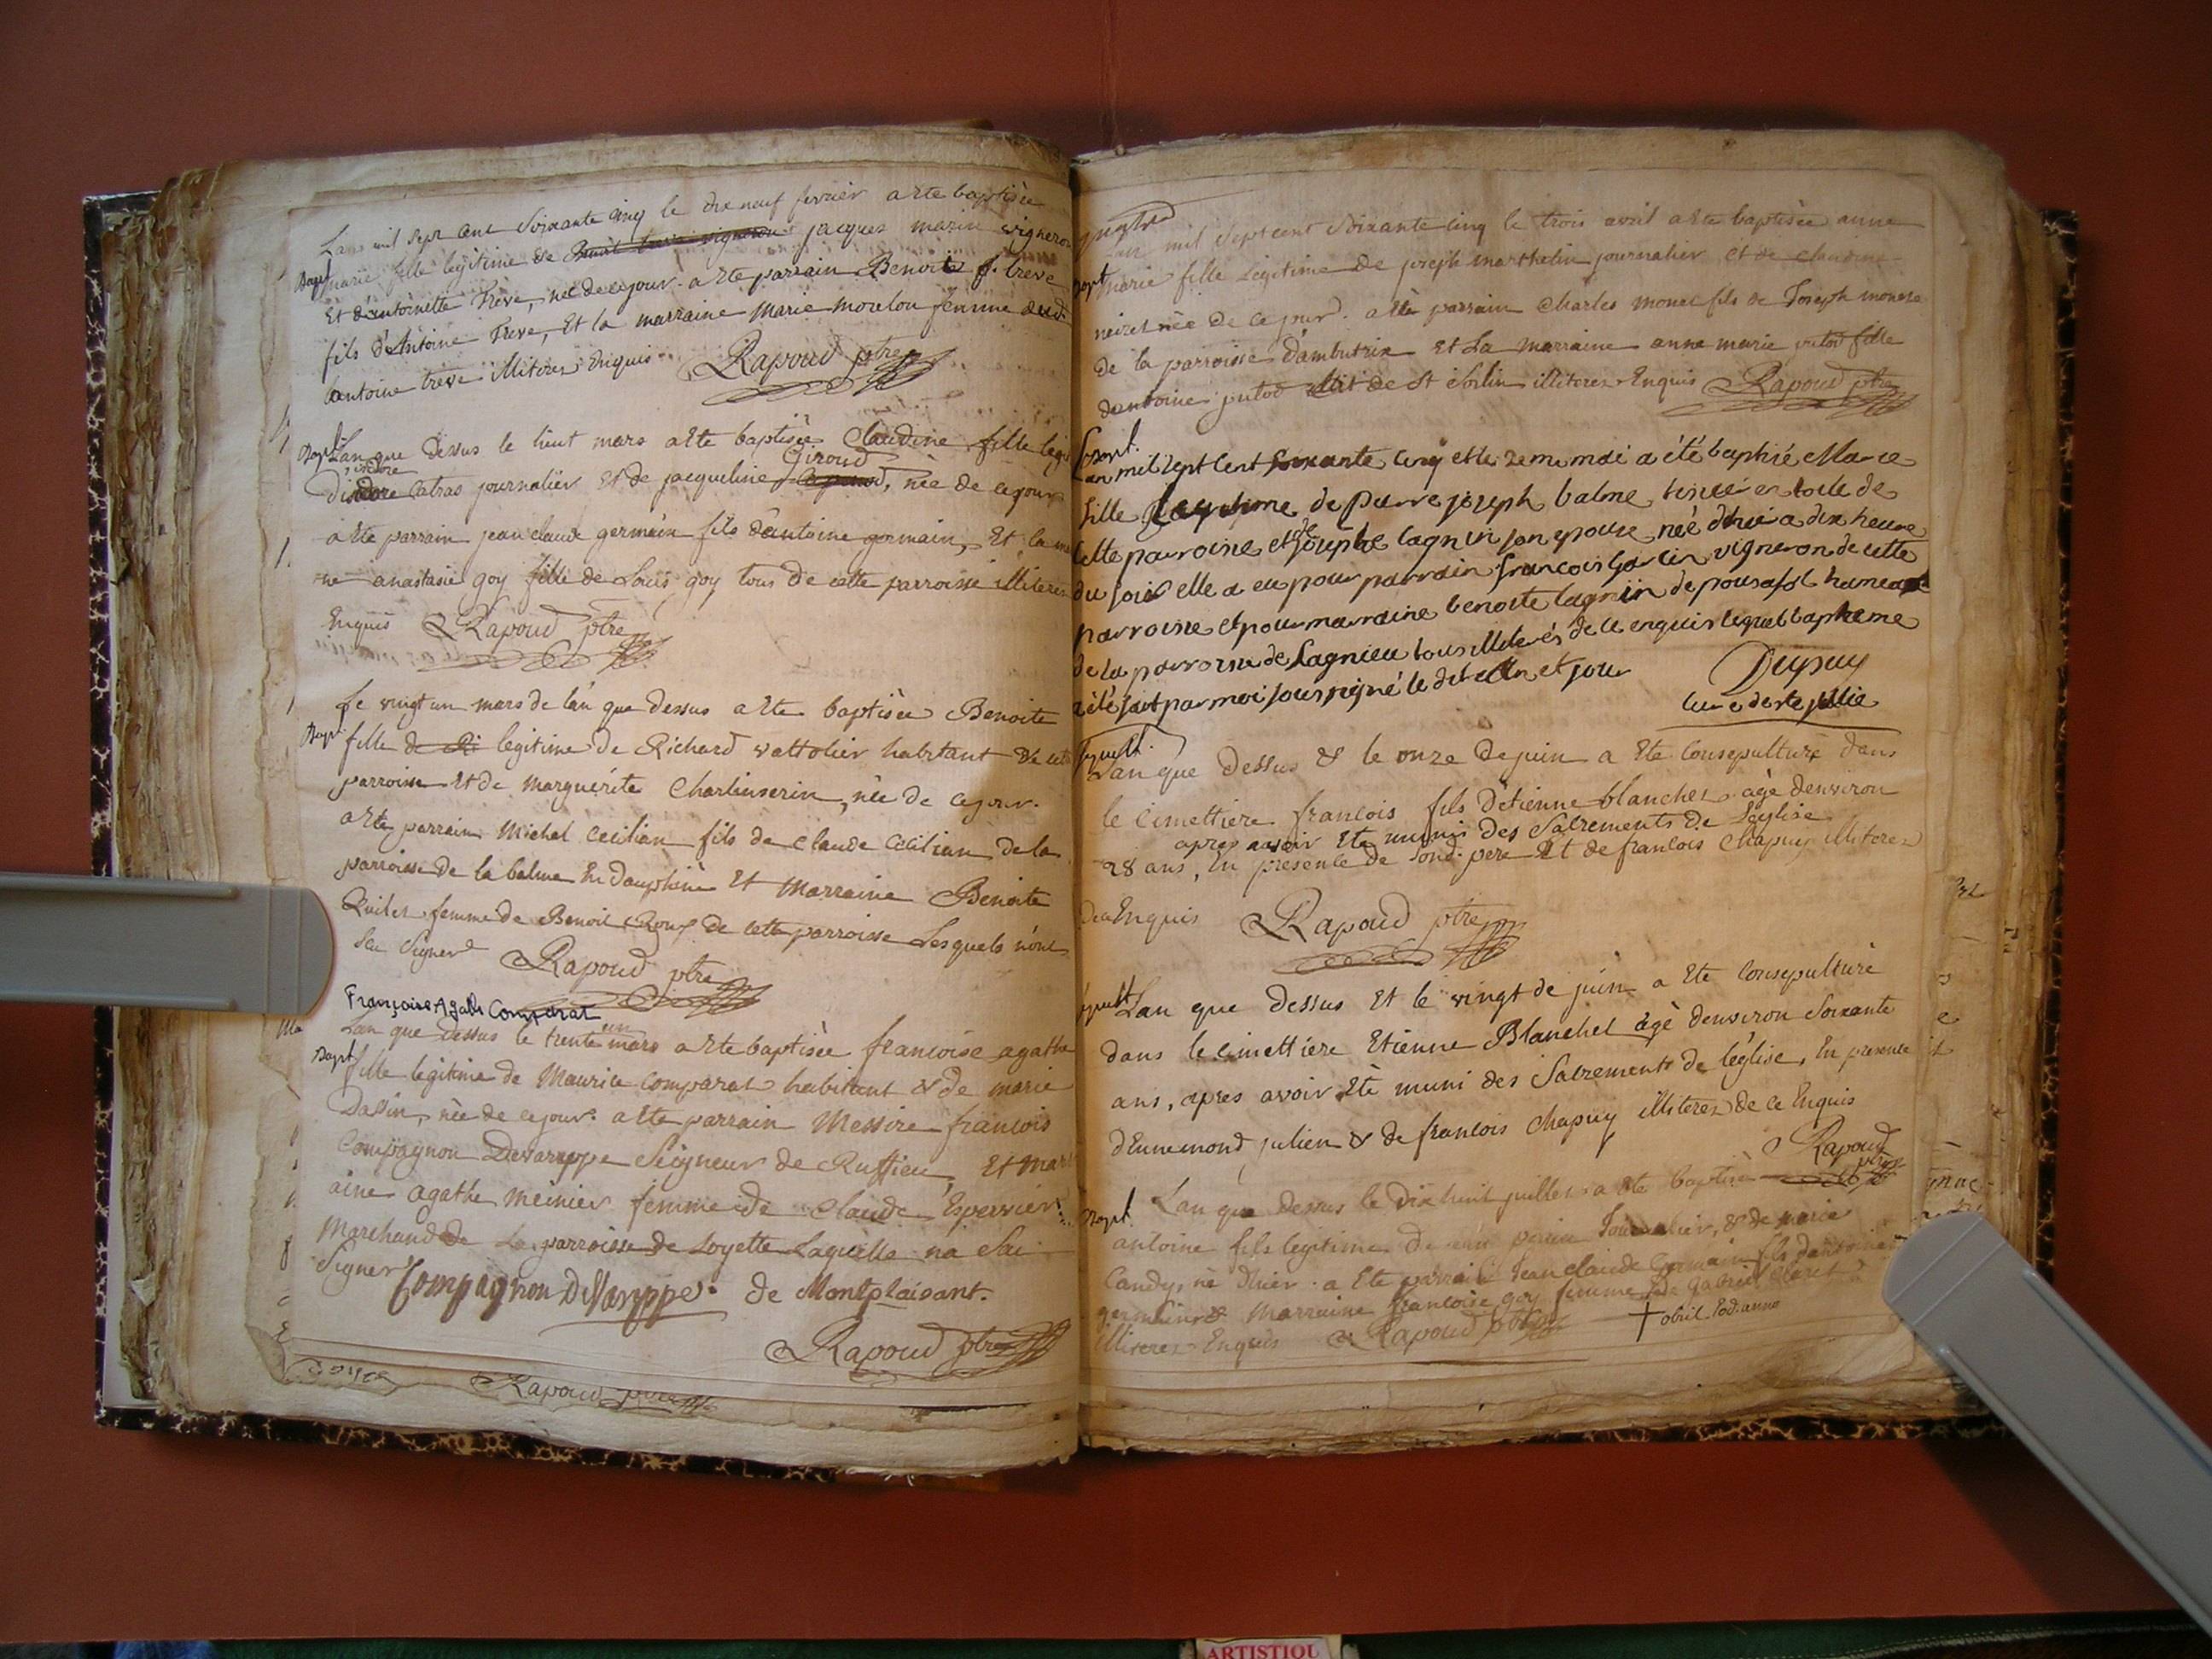 Lan mil sept cent soixante cinq le dix neuf fevrier a ete baptisée
Bapt marie fille legitime de jacques marin vigneron
Et d'antoinette Treve, née de ce jour. a ete parrain Benoit f. treve
fils d'Antoine Treve, Et la marraine Marie morelou femme dud.
antoine treve illiteres Enquis Rapoud ptre
Bapt Lan que dessus le huit mars a ete baptisée Claudine fille legi
isidore Giroud
Catras journalier et de jacqueline née de ce jour
a ete parrain jean claude germain fils d'antoine germain, Et la ma
ne anastasie goy fille de Louis goy tous de cette parroisse illiteres
Enquis Rapoud ptre
Le vingt un mars de lan que dessus a ete baptisée Benoite
Bapt fille de Ri legitime de Richard vattolier habitant de cette
parroisse Et de marguerite Charlinserin, née de ce jour.
a ete parrain Michel cecilian fils de claude cecilian de la
parroisse de la balme En dauphiné Et Marraine Benoite
Quilet femme de Benoit Roux de cette parroisse Lesquels n'ont
Scu Signer Rapoud ptre
Françoise Agathe Comparat
un
Lan que dessus le trente mars a ete baptisée francoise agathe
Bapt fille legitime de Maurice comparat habitant & de marie
Dassin, née de ce jour. a ete parrain Messire francois
Compagnon Devareppe Seigneur de Ruffieu, Et Marr
aine agathe meinier femme de Claude Espervier
Marchand de La parroisse de Loyette Laquelle na Scu
Signer Compagnon DeVareppe. de Montplaisant.
Rapoud ptre
Rapoud ptre
Lan mil sept cent soixante cinq le trois avril a ete baptisée anne
Bapt marie fille Legitime de joseph marthelin journalier et de claudine
neiret née de ce jour. a ete parrain Charles monet fils de Joseph monet
de la parroisse d'ambutrix Et La marraine anne marie jutod fille
dantoine jutod de St Sorlin illiteres Enquis Rapoud ptre
Bapt.
Lan mil sept cent soixante cinq et le 2eme mai a été baptisé Marie
fille Legitime de pierre joseph balme tissier en toile de
de
cette parroisse et josephe lagnin son epouse née d'hui a dix heure
du soir elle a eu pour parrain francois garcin vigneron de cette
parroisse et pour marraine benoite lagnin de pousafol hameau
de la parroisse de Lagnieu tous illiterés de ce enquis lequel baptheme
a été fait par moi soussigné le dit an et jour Dupuy
curé de ste jullie
Sepult.
Lan que dessus & le onze de juin a ete Consepulturé dans
le cimettiere francois fils d'etienne blanchet agé denviron
apres avoir ete munis des Sacrements de l'eglise
28 ans, En presence de Sond. pere Et de francois Chapuy illiteres
de ce Enquis Rapoud ptre
Sepult Lan que dessus Et le vingt de juin a ete Consepulturé
dans le cimettiere Etienne Blanchet agé denviron Soixante
ans, apres avoir eté muni des Sacrements de l'eglise, En presence
d'Ennemond julien & de francois Chapuy illiteres de ce Enquis
Rapoud
ptre
Bapt. Lan que dessus le dix huit juillet a ete baptisé
antoine fils legitime de perin Journalier, & de marie
Candy, né d'hier. a ete parrain Jean claude Germain fils d'antoine
germain & Marraine francoise goy femme de Gabriel claret
illiteres Enquis Rapoud ptre † obiit Eod. anno
ARTISTIQU